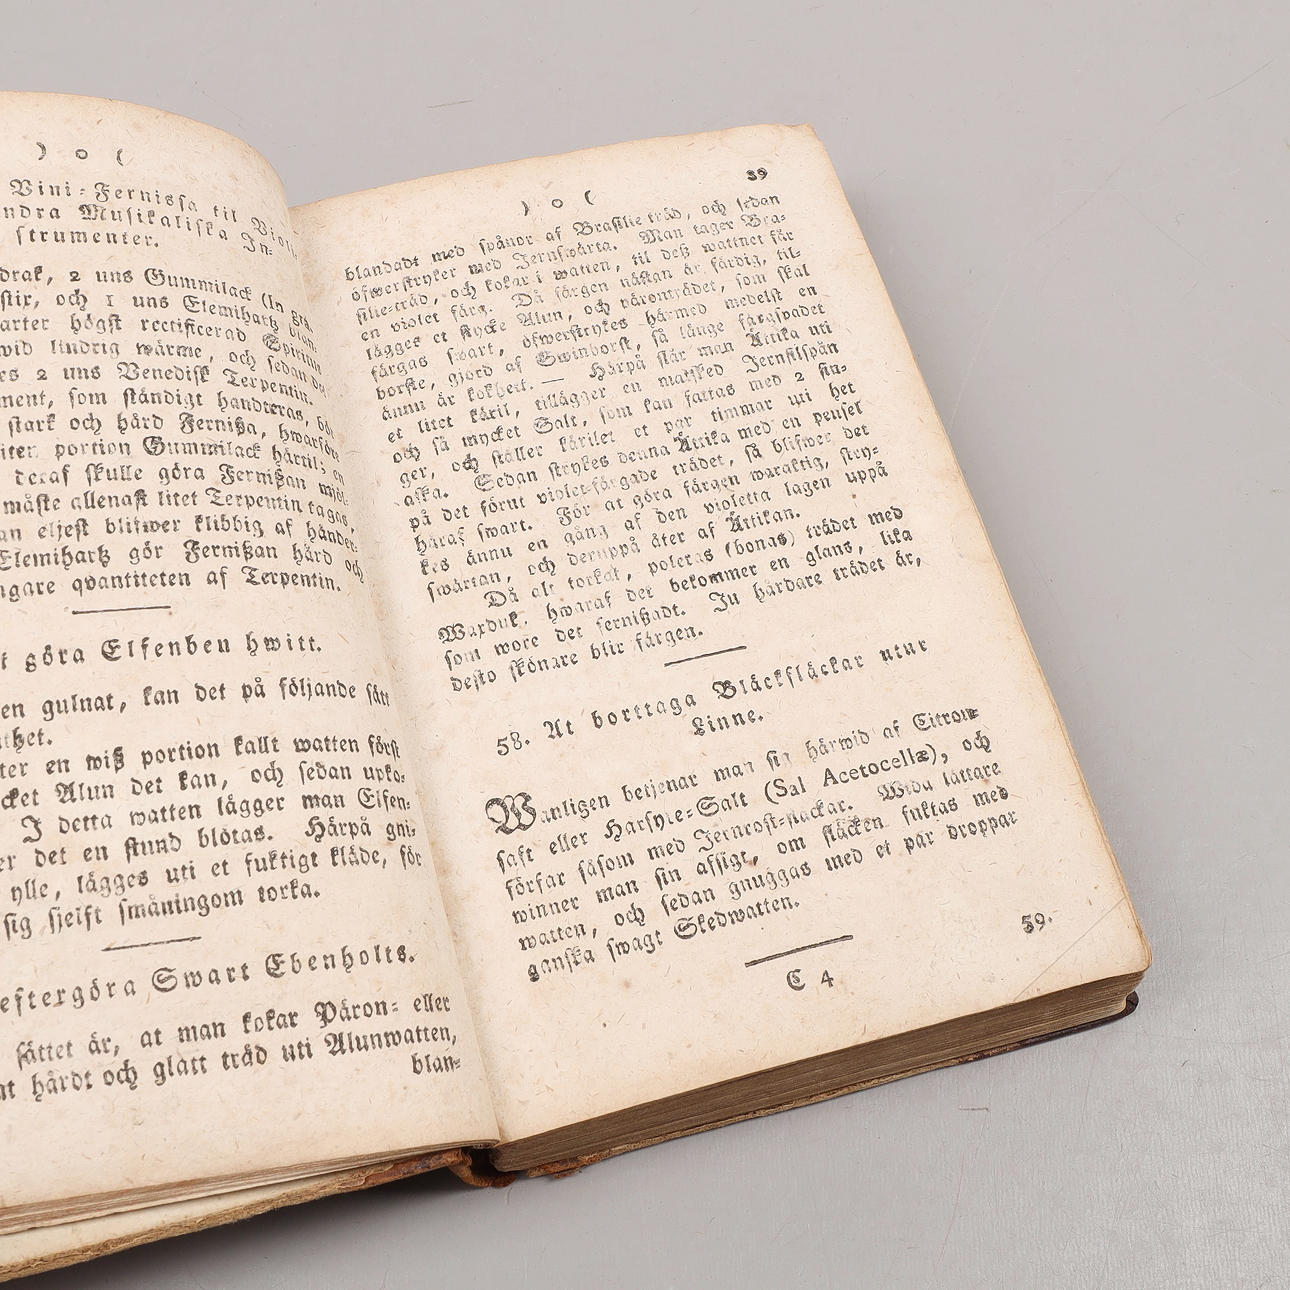 ) o (
Vini-Fernissa til Viol-
ndra Musikaliska In-
strumenter.
drak, 2 uns Gummilack (In gra-
stix, och 1 uns Elemihartz blan-
arter högst rectificerad Spiritus
wid lindrig wärme, och sedan det
es 2 uns Venedisk Terpentin.
ment, som ständigt handteras, bör
stark och hård Fernißa, hwarföre
iten portion Gummilack härtil; en
deraf skulle göra Fernißan mjöl-
måste allenast litet Terpentin tagas,
an eljest blifwer klibbig af händer-
Elemihartz gör Fernißan hård och
ngare qvantiteten af Terpentin.
t göra Elfenben hwitt.
en gulnat, kan det på följande sätt
thet.
ter en wiß portion kallt watten först
cket Alun det kan, och sedan upko-
I detta watten lägger man Elfen-
er det en stund blötas. Härpå gni-
ylle, lägges uti et fuktigt kläde, för
sig sjelft småningom torka.
eftergöra Swart Ebenholts.
sättet är, at man kokar Päron- eller
at hårdt och glatt träd uti Alunwatten,
blan-
) o (
39
blandadt med spånor af Brasilie träd, och sedan
öfwerstryker med Jernswärta. Man tager Bra-
silie-träd, och kokar i watten, til deß wattnet får
en violet färg. Då färgen nästan är färdig, til-
lägges et stycke Alun, och päronträdet, som skal
färgas swart, öfwerstrykes härmed medelst en
borste, gjord af Swinborst, så länge färgspadet
ännu är kokhett. — Härpå slår man Ättika uti
et litet käril, tillägger en matsked Jernfilspån
och så mycket Salt, som kan fattas med 2 fin-
ger, och ställer kärilet et par timmar uti het
aska. Sedan strykes denna Ättika med en pensel
på det förut violet-färgade trädet, så blifwer det
häraf swart. För at göra färgen waraktig, stry-
kes ännu en gång af den violetta lagen uppå
swärtan, och deruppå åter af Ättikan.
Då alt torkat, poleras (bonas) trädet med
Waxduk, hwaraf det bekommer en glans, lika
som wore det fernißadt. Ju hårdare trädet är,
desto skönare blir färgen.
58. At borttaga Bläckfläckar utur
Linne.
Wanligen betjenar man sig härwid af Citron-
saft eller Harsyre-Salt (Sal Acetocellæ), och
förfar såsom med Jernrost-fläckar. Wida lättare
winner man sin afsigt, om fläcken fuktas med
watten, och sedan gnuggas med et par droppar
ganska swagt Skedwatten.
C 4
59.